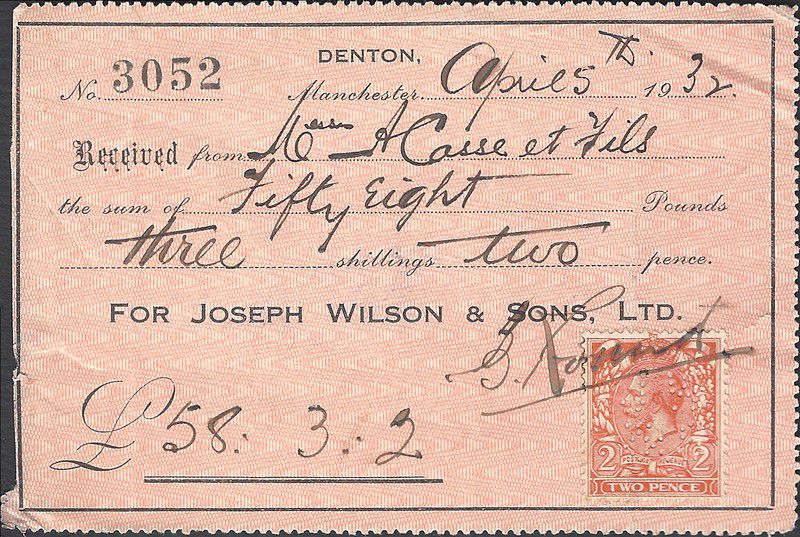 DENTON,
No. 3052 Manchester, April 5th. 1932.
Received from Messrs A Casse et Fils
the sum of Fifty Eight Pounds
three shillings two pence.
FOR JOSEPH WILSON & SONS, LTD.
£ 58. 3. 2
2 POSTAGE REVENUE 2
TWO PENCE